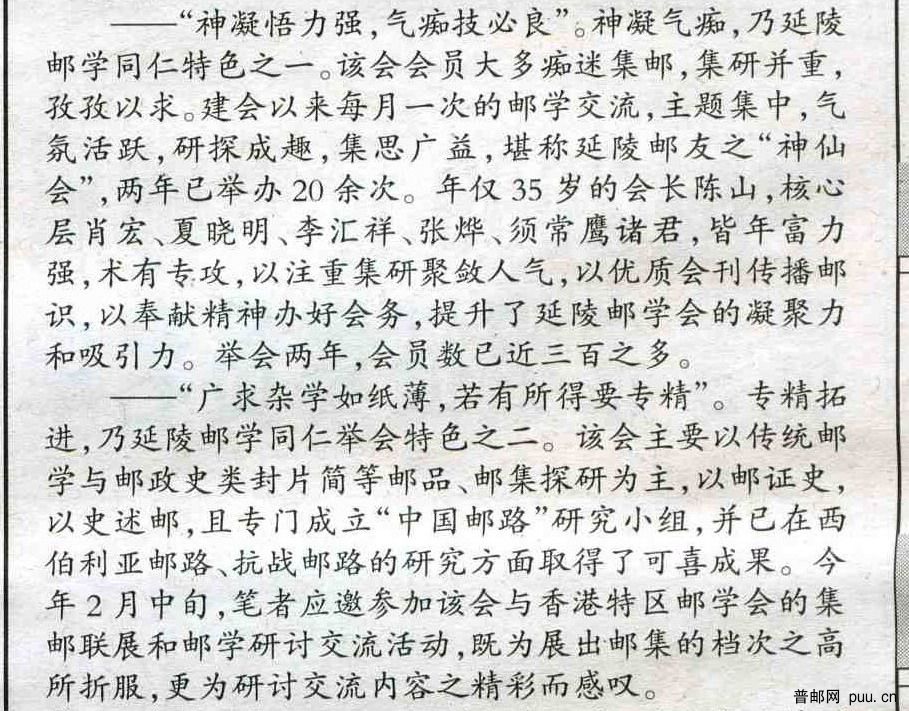 ——“神凝悟力强，气痴技必良”。神凝气痴，乃延陵
邮学同仁特色之一。该会会员大多痴迷集邮，集研并重，
孜孜以求。建会以来每月一次的邮学交流，主题集中，气
氛活跃，研探成趣，集思广益，堪称延陵邮友之“神仙
会”，两年已举办 20 余次。年仅 35 岁的会长陈山，核心
层肖宏、夏晓明、李汇祥、张烨、须常鹰诸君，皆年富力
强，术有专攻，以注重集研聚敛人气，以优质会刊传播邮
识，以奉献精神办好会务，提升了延陵邮学会的凝聚力
和吸引力。举会两年，会员数已近三百之多。
——“广求杂学如纸薄，若有所得要专精”。专精拓
进，乃延陵邮学同仁举会特色之二。该会主要以传统邮
学与邮政史类封片简等邮品、邮集探研为主，以邮证史，
以史述邮，且专门成立“中国邮路”研究小组，并已在西
伯利亚邮路、抗战邮路的研究方面取得了可喜成果。今
年 2 月中旬，笔者应邀参加该会与香港特区邮学会的集
邮联展和邮学研讨交流活动，既为展出邮集的档次之高
所折服，更为研讨交流内容之精彩而感叹。
普邮网 puu.cn